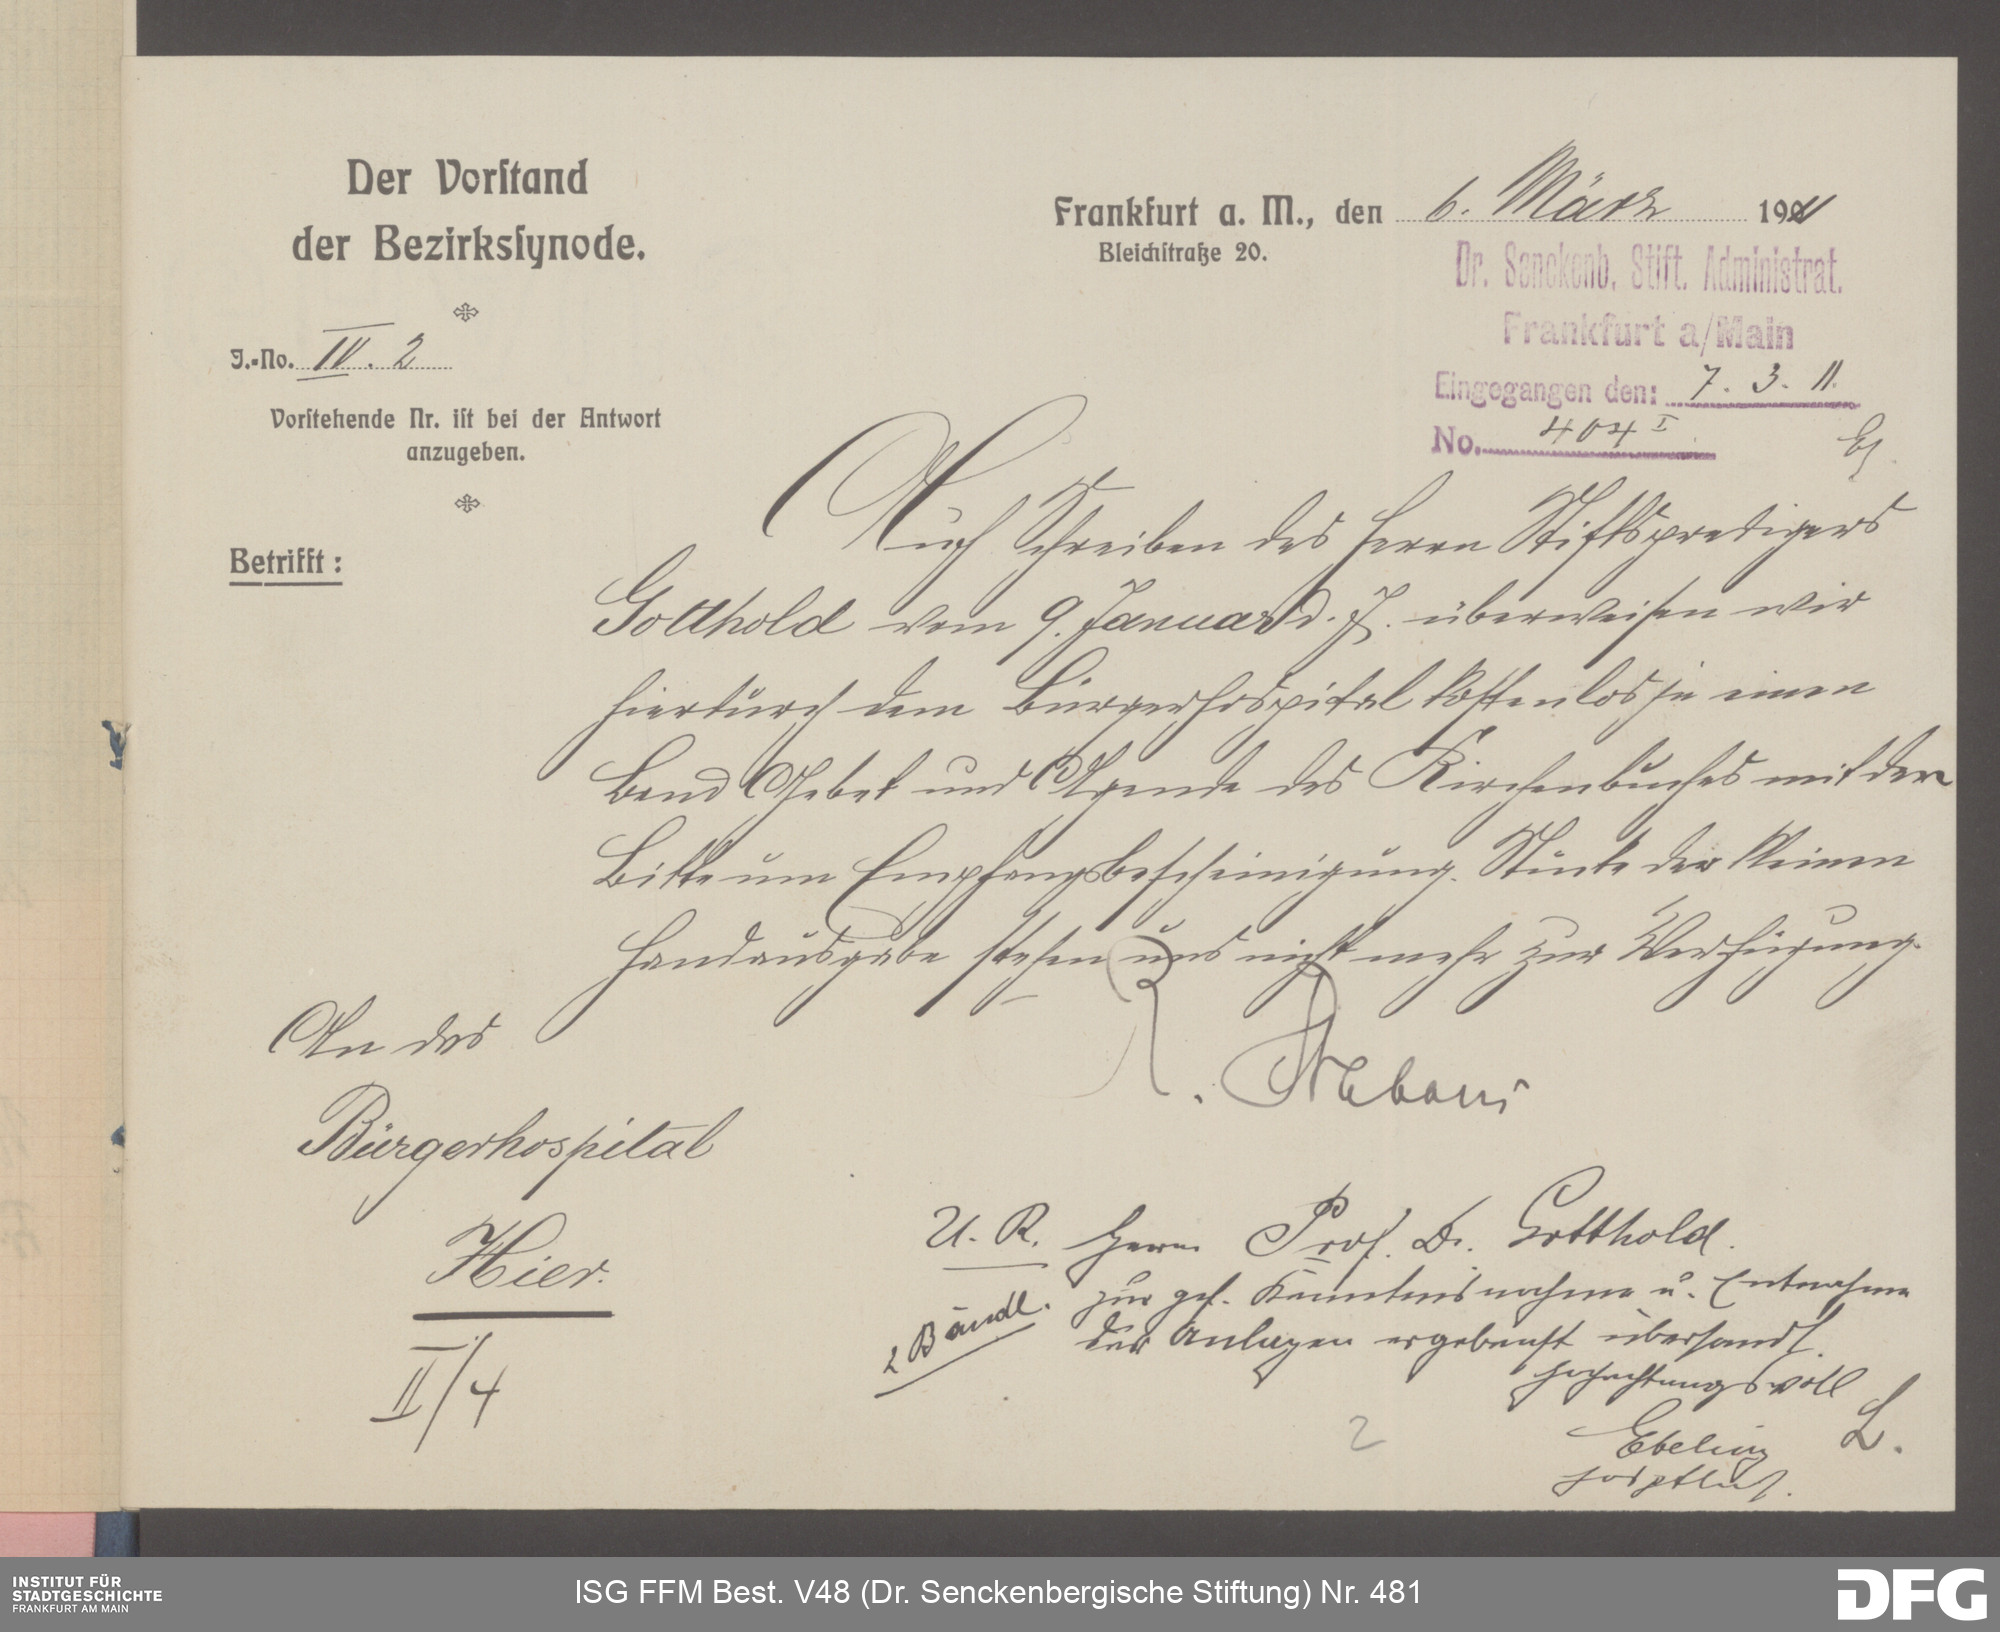 Der Vorstand
der Bezirkssynode.
J.-No. IV. 2
Vorstehende Nr. ist bei der Antwort
anzugeben.
Betrifft:
Frankfurt a. M., den 6. März 1911
Bleichstraße 20.
Dr. Senckenb. Stift. Administrat.
Frankfurt a/Main
Eingegangen den: 7. 3. 11.
No. 404 I
Auf Schreiben des Herrn Stiftspredigers
Gotthold vom 9. Januar d. J. überweisen wir
hierdurch dem Bürgerhospital kostenlos je einen
Band Gebet und Agende des Kirchenbuches mit der
Bitte um Empfangsbescheinigung. Stücke der kleinen
Handausgabe stehen uns nicht mehr zur Verfügung.
An das
Bürgerhospital
Hier.
II/4
U. R. Herrn Prof. Dr. Gotthold.
zur gef. Kenntnisnahme u. Entnahme
der Anlagen ergebenst übersandt.
2 Bändl.
Hochachtungsvoll
Ebeling L.
2
INSTITUT FÜR
STADTGESCHICHTE
FRANKFURT AM MAIN
ISG FFM Best. V48 (Dr. Senckenbergische Stiftung) Nr. 481
DFG